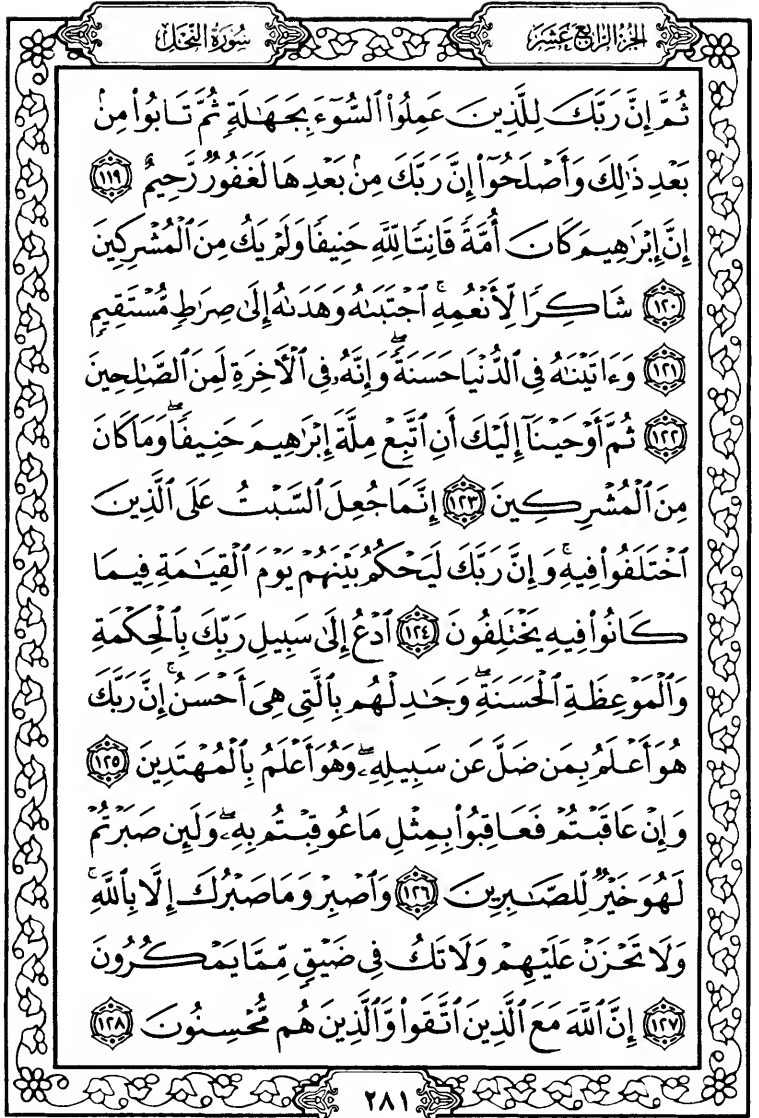 الجزء الرابع عشر
سورة النحل
ثُمَّ إِنَّ رَبَّكَ لِلَّذِينَ عَمِلُوا۟ ٱلسُّوٓءَ بِجَهَـٰلَةٍ ثُمَّ تَابُوا۟ مِنۢ
بَعْدِ ذَٰلِكَ وَأَصْلَحُوٓا۟ إِنَّ رَبَّكَ مِنۢ بَعْدِهَا لَغَفُورٌ رَّحِيمٌ ١١٩
إِنَّ إِبْرَٰهِيمَ كَانَ أُمَّةً قَانِتًا لِّلَّهِ حَنِيفًا وَلَمْ يَكُ مِنَ ٱلْمُشْرِكِينَ
١٢٠ شَاكِرًا لِّأَنْعُمِهِ ۚ ٱجْتَبَىٰهُ وَهَدَىٰهُ إِلَىٰ صِرَٰطٍ مُّسْتَقِيمٍ
١٢١ وَءَاتَيْنَـٰهُ فِى ٱلدُّنْيَا حَسَنَةً ۖ وَإِنَّهُۥ فِى ٱلْـَٔاخِرَةِ لَمِنَ ٱلصَّـٰلِحِينَ
١٢٢ ثُمَّ أَوْحَيْنَآ إِلَيْكَ أَنِ ٱتَّبِعْ مِلَّةَ إِبْرَٰهِيمَ حَنِيفًا ۖ وَمَا كَانَ
مِنَ ٱلْمُشْرِكِينَ ١٢٣ إِنَّمَا جُعِلَ ٱلسَّبْتُ عَلَى ٱلَّذِينَ
ٱخْتَلَفُوا۟ فِيهِ ۚ وَإِنَّ رَبَّكَ لَيَحْكُمُ بَيْنَهُمْ يَوْمَ ٱلْقِيَـٰمَةِ فِيمَا
كَانُوا۟ فِيهِ يَخْتَلِفُونَ ١٢٤ ٱدْعُ إِلَىٰ سَبِيلِ رَبِّكَ بِٱلْحِكْمَةِ
وَٱلْمَوْعِظَةِ ٱلْحَسَنَةِ ۖ وَجَـٰدِلْهُم بِٱلَّتِى هِىَ أَحْسَنُ ۚ إِنَّ رَبَّكَ
هُوَ أَعْلَمُ بِمَن ضَلَّ عَن سَبِيلِهِۦ ۖ وَهُوَ أَعْلَمُ بِٱلْمُهْتَدِينَ ١٢٥
وَإِنْ عَاقَبْتُمْ فَعَاقِبُوا۟ بِمِثْلِ مَا عُوقِبْتُم بِهِۦ ۖ وَلَئِن صَبَرْتُمْ
لَهُوَ خَيْرٌ لِّلصَّـٰبِرِينَ ١٢٦ وَٱصْبِرْ وَمَا صَبْرُكَ إِلَّا بِٱللَّهِ ۚ
وَلَا تَحْزَنْ عَلَيْهِمْ وَلَا تَكُ فِى ضَيْقٍ مِّمَّا يَمْكُرُونَ
١٢٧ إِنَّ ٱللَّهَ مَعَ ٱلَّذِينَ ٱتَّقَوا۟ وَّٱلَّذِينَ هُم مُّحْسِنُونَ ١٢٨
٢٨١